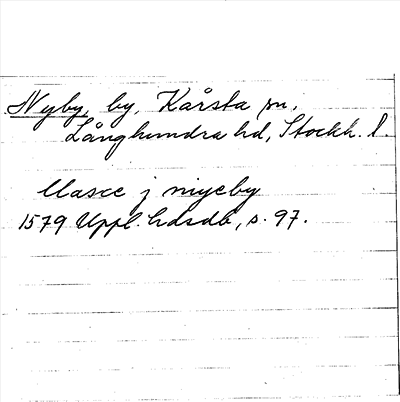 Nyby, by, Kårsta sn,
Långhundra hd, Stockh. l.
Masse j niyeby
1579 Uppl. hdsdb, s. 97.